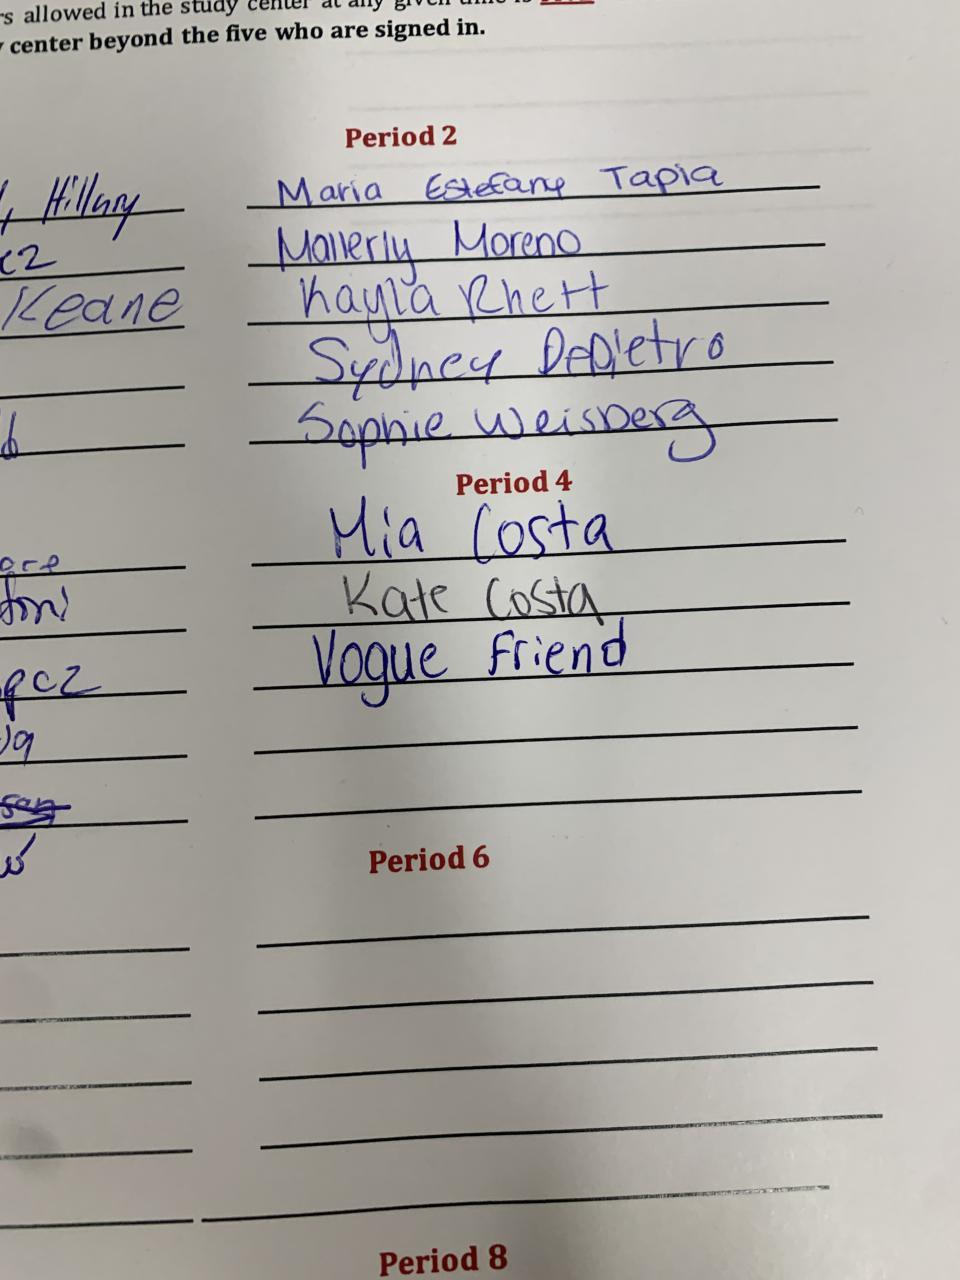 rs allowed in the study center at any given time is
center beyond the five who are signed in.
Period 2
Hillary
Maria Estefany Tapia
Mallerly Moreno
Keane
Kayla Rhett
Sydney DePietro
Sophie Weisberg
Period 4
Mia Costa
Kate Costa
Vogue Friend
Period 6
Period 8